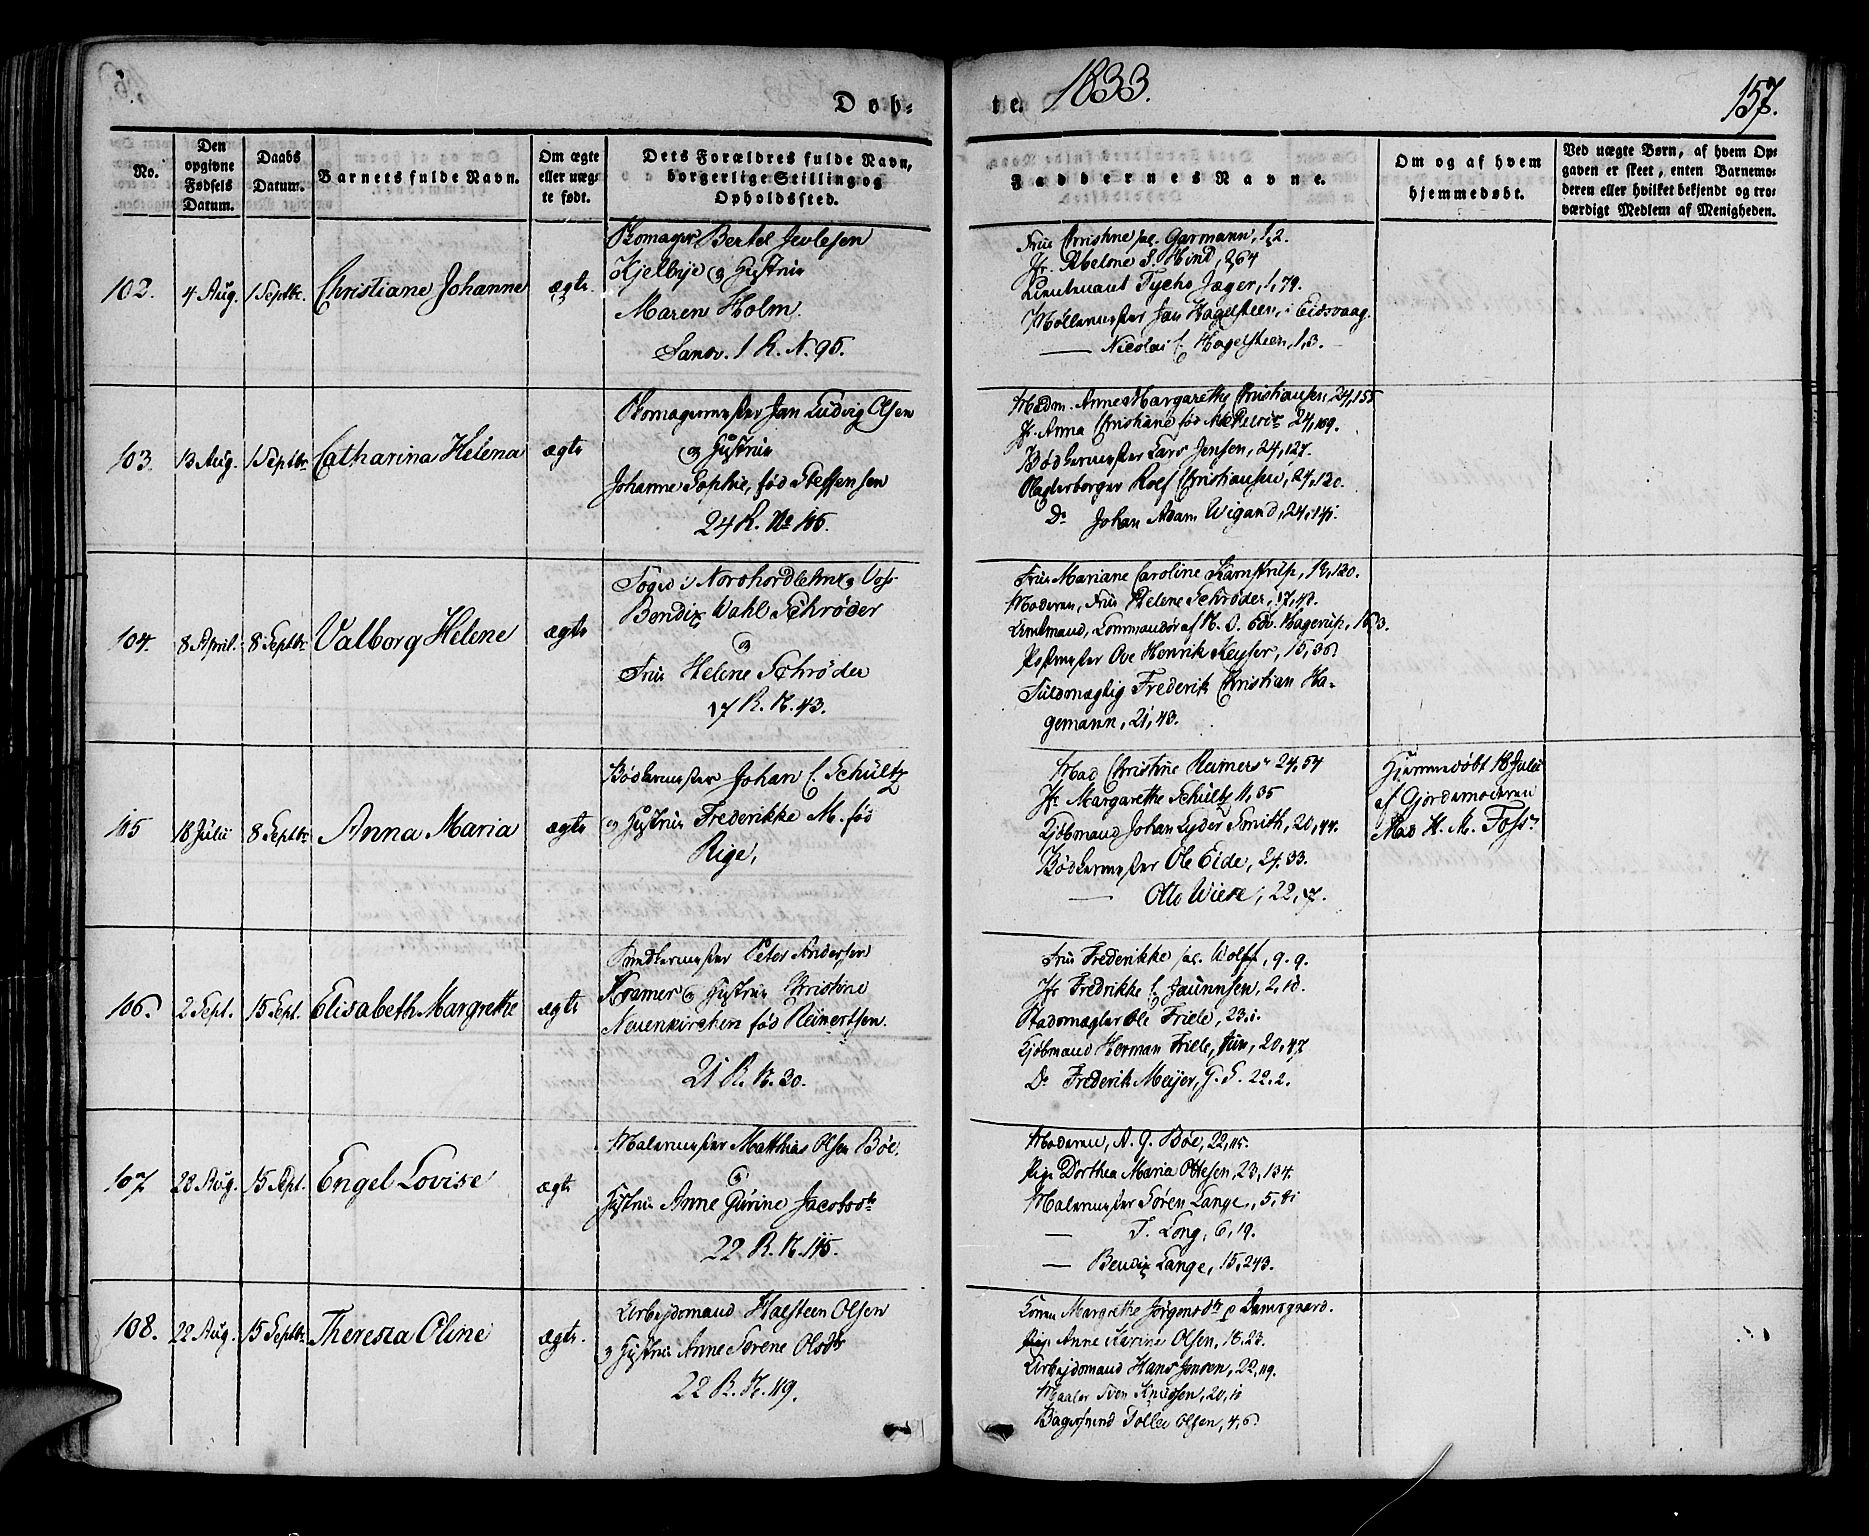 Døb-
te.
1833.
157.
No.
Den opgivne Fødsels Datum.
Daabs Datum.
Barnets fulde Navn.
Om ægte eller uægte født.
Dets Forældres fulde Navn, borgerlige Stilling og Opholdssted.
Faddernes Navne.
Om og af hvem hjemmedøbt.
Ved uægte Børn, af hvem Opgaven er skeet, enten Barnemoderen eller hvilket bekjendt og troværdigt Medlem af Menigheden.
102. 4 Aug. 1 Septbr. Christiane Johanne ægte.
Bertel
og Hustrue
Maren Holm.
Sandv. 1 R. N. 95.
Frue Christine sal. Garmann, 1,2.
Jfr. Abelone S. Hind, 2,64
Lieutenant Tycho Jæger, 1,79.
Møllemester Jan Hagelsteen, i Eidsvaag.
— Nicolai C. Hagelsteen, 1,3.
103. 13 Aug. 1 Septbr. Catharina Helena ægte
Jan Ludvig Olsen
og Hustrue
Johanne Sophie, fød Steffensen
24 R. No 105.
Madm. Anne Margarethe Christiansen, 24,155
Jfr. Anna Christiane fød 24,109.
Bødkermester Lars Jensen, 24,127.
Roef Christiansen, 24,120.
Do Johan Adam Wigand, 24,141.
104. 8 April. 8 Septbr. Valborg Helene ægte
Foged i Nordhordlehn og Voss
Bendix Wahl Schrøder
og
Frue Helene Schrøder
17 R. N. 43.
Frue Mariane Caroline Kamstrup, 19,120.
Moderen, Frue Helene Schrøder, 17,43.
Amtmand, Commandør af N. O. Edv. Hagerup, 16,3.
Postmester Ove Henrik Keyser, 15,36.
Fuldmægtig Frederik Christian Ha-
gemann, 21,43.
105 18 Julii 8 Septbr. Anna Maria ægte
Bødkermester Johan C. Schultz
og Hustrue Frederikke M. fød
Rige,
Mad Christine Reimers 24,54
Jfr. Margarethe Schultz 11,35
Kjøbmand Johan Lyder Smith, 20,44.
Bødkermester Ole Eide, 24,33.
— Otto Wiese, 22,17.
Hjemmedøbt 18 Julii
af Gjordemoderen
Mad H. M. Foss.
106. 2 Sept. 15 Sept. Elisabeth Margrethe ægte
Peter Andersen
Kramer og Hustrue Christine
Neuenkirchen fød Reinertsen.
21 R. N. 30.
Frue Frederikke sal. Wolff, 9.9.
Jfr. Fredrikke C. 2,18.
Stadsmægler Ole Friele, 23.1.
Kjøbmand Herman Friele, Jun, 20,47
Do Frederik Meijer, G. S. 22.2.
107 28 Aug. 15 Sept. Engel Lovise ægte
Malermester Matthias Olsen Bøe.
og
Hustrue Anne Gurine Jacobsdtr
22 R. N. 145.
Moderen, A. G. Bøe, 22,145.
Pige Dorthea Maria Ottesen, 23,134.
Malermester Søren Lange, 5,41
— T. Long, 6,19.
— Bendix Lange, 15,243.
108. 22 Aug. 15 Septbr. Theresia Oline ægte.
Arbejdsmand Halsteen Olsen
og Hustrue Anne Serene Olsdtr
22 R. N. 119.
Konen Margrethe Jørgensdtr p Damsgaard.
Pige Anne Karine Olsen, 18.23.
Arbejdsmand Hans Jensen, 22,119.
Maaler Sven Knudsen, 20,10
Bagersvend Tollev Olsen, 4,6